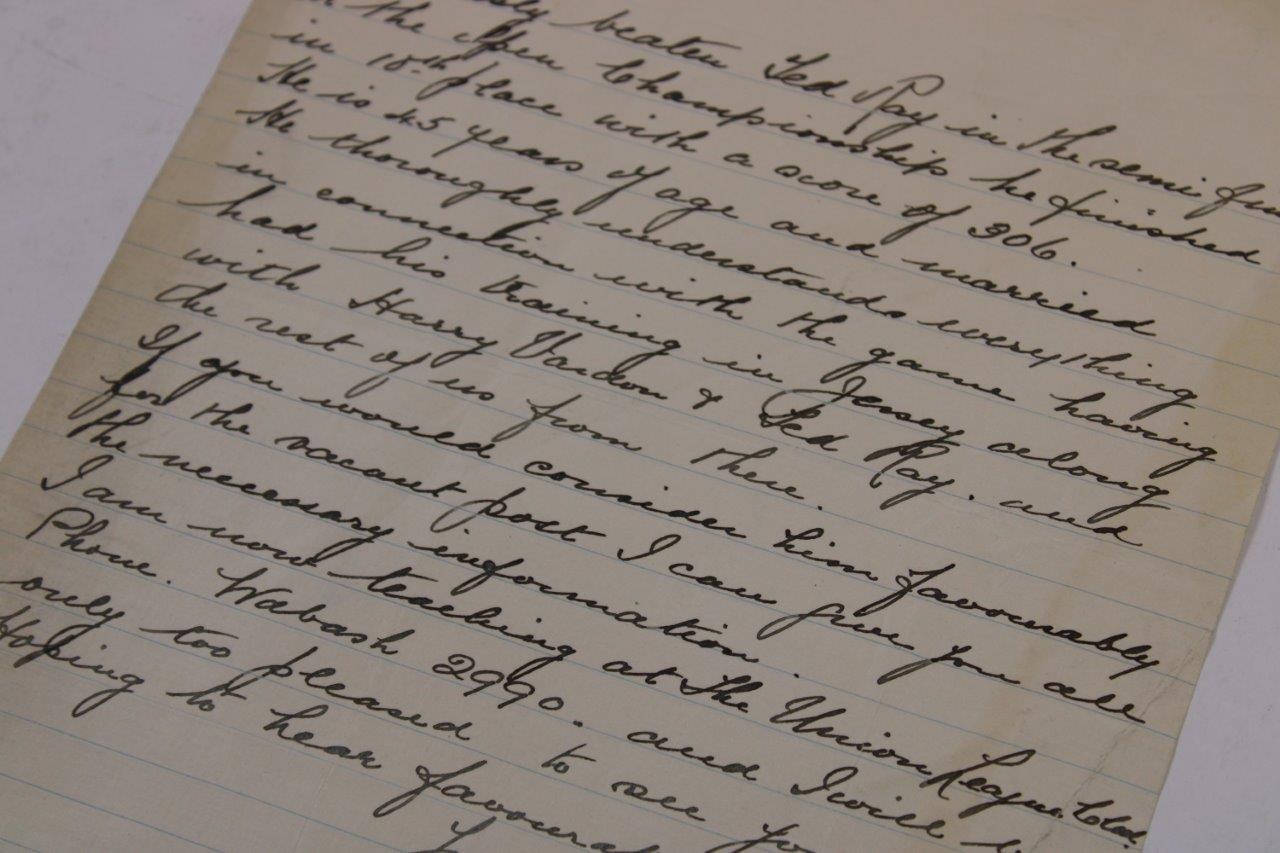 beaten Ted Ray in the semi
the Open Championship he finished
in 10th place with a score of 306.
He is 45 years of age and married
He thoroughly understands everything
in connection with the game having
had his training in Jersey along
with Harry Vardon & Ted Ray. and
the rest of us from there.
If you would consider him favourably
for the vacant post I can give you all
the necessary information.
I am now teaching at The Union League Club.
Phone. Wabash 2990. and I will
only too pleased to see
Hoping to hear